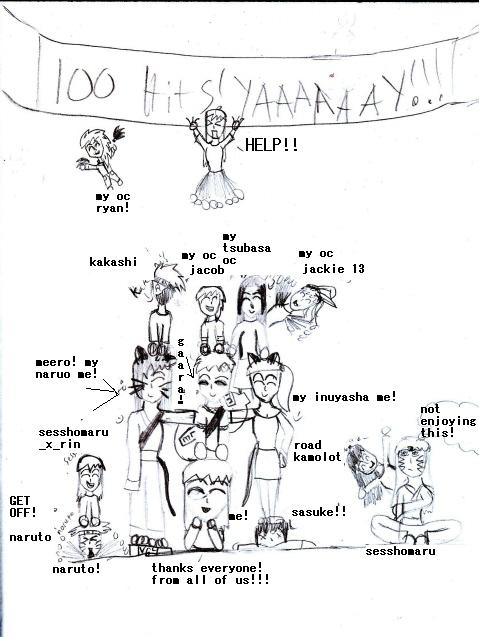 100 Hits! YAAAAAAY!!!
HELP!!
my oc
ryan!
my
tsubasa
oc
kakashi
my oc
jacob
my oc
jackie 13
gaara!
meero! my
naruo me!
my inuyasha me!
not
enjoying
this!
sesshomaru
_x_rin
road
kamolot
GET
OFF!
me!
sasuke!!
naruto
sesshomaru
naruto!
thanks everyone!
from all of us!!!